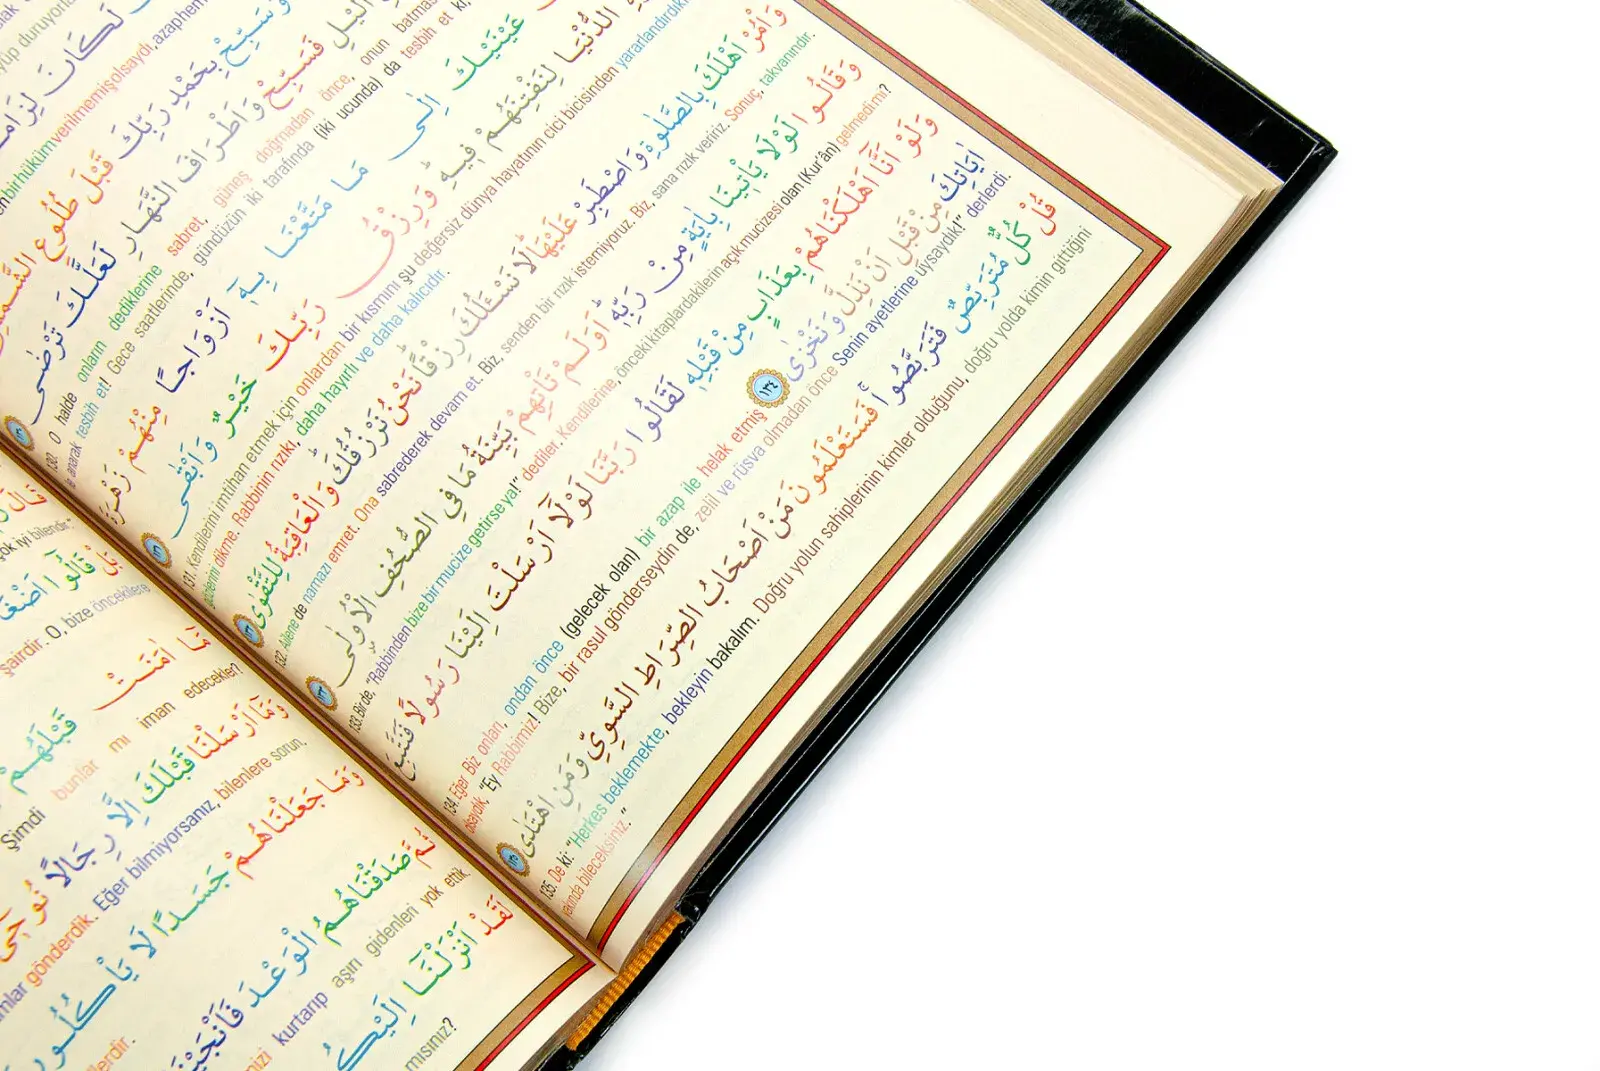 لَكَانَ لِزَامًا
en bir hüküm verilmemiş olsaydı, azap hem
وَسَبِّحْ بِحَمْدِ رَبِّكَ قَبْلَ طُلُوعِ الشَّمْسِ
الَّيْلِ فَسَبِّحْ وَاَطْرَافَ النَّهَارِ لَعَلَّكَ تَرْضٰى ١٣٠
130. O halde onların dediklerine sabret, güneş doğmadan önce, onun batmas
le anarak tesbih et! Gece saatlerinde, gündüzün iki tarafında (iki ucunda) da tesbih et ki,
عَيْنَيْكَ اِلٰى مَا مَتَّعْنَا بِهٖٓ اَزْوَاجًا مِنْهُمْ زَهْرَةَ
الدُّنْيَا لِنَفْتِنَهُمْ فٖيهِ وَرِزْقُ رَبِّكَ خَيْرٌ وَاَبْقٰى ١٣١
131. Kendilerini imtihan etmek için onlardan bir kısmını şu değersiz dünya hayatının cici bicisinden yararlandırdık
gözlerini dikme. Rabbinin rızıkı, daha hayırlı ve daha kalıcıdır.
وَاْمُرْ اَهْلَكَ بِالصَّلٰوةِ وَاصْطَبِرْ عَلَيْهَا لَا نَسْـَٔلُكَ رِزْقًا نَحْنُ نَرْزُقُكَ وَالْعَاقِبَةُ لِلتَّقْوٰى ١٣٢
132. Ailene de namazı emret. Ona sabrederek devam et. Biz, senden bir rızık istemiyoruz. Biz, sana rızık veririz. Sonuç, takvanındır.
وَقَالُوا لَوْلَا يَاْتٖينَا بِاٰيَةٍ مِنْ رَبِّهٖ اَوَلَمْ تَاْتِهِمْ بَيِّنَةُ مَا فِى الصُّحُفِ الْاُولٰى ١٣٣
133. Bir de, "Rabbinden bize bir mucize getirse ya!" dediler. Kendilerine, önceki kitaplardakilerin açık mucizesi olan (Kur'ân) gelmedi mi?
وَلَوْ اَنَّٓا اَهْلَكْنَاهُمْ بِعَذَابٍ مِنْ قَبْلِهٖ لَقَالُوا رَبَّنَا لَوْلَٓا اَرْسَلْتَ اِلَيْنَا رَسُولًا فَنَتَّبِعَ
اٰيَاتِكَ مِنْ قَبْلِ اَنْ نَذِلَّ وَنَخْزٰى ١٣٤
134. Eğer Biz onları, ondan önce (gelecek olan) bir azap ile helak etmiş
olsaydık, "Ey Rabbimiz! Bize, bir rasul gönderseydin de, zelil ve rüsva olmadan önce Senin ayetlerine uysaydık!" derlerdi.
قُلْ كُلٌّ مُتَرَبِّصٌ فَتَرَبَّصُوا فَسَتَعْلَمُونَ مَنْ اَصْحَابُ الصِّرَاطِ السَّوِىِّ وَمَنِ اهْتَدٰى ١٣٥
135. De ki: "Herkes beklemekte, bekleyin bakalım. Doğru yolun sahiplerinin kimler olduğunu, doğru yolda kimin gittiğini
yakında bileceksiniz."
قَالَ
çok iyi bilendir."
بَلْ قَالُٓوا اَضْغَا
şairdir. O, bize öncekilere
مَٓا اٰمَنَتْ قَبْلَهُمْ
Şimdi bunlar mı iman edecekler?
وَمَٓا اَرْسَلْنَا قَبْلَكَ اِلَّا رِجَالًا نُوحٖٓى
amlar gönderdik. Eğer bilmiyorsanız, bilenlere sorun.
وَمَا جَعَلْنَاهُمْ جَسَدًا لَا يَاْكُلُونَ
lerdir.
ثُمَّ صَدَقْنَاهُمُ الْوَعْدَ فَاَنْجَيْنَا
mizi kurtarıp aşırı gidenleri yok ettik.
لَقَدْ اَنْزَلْنَٓا اِلَيْكُ
mısınız?